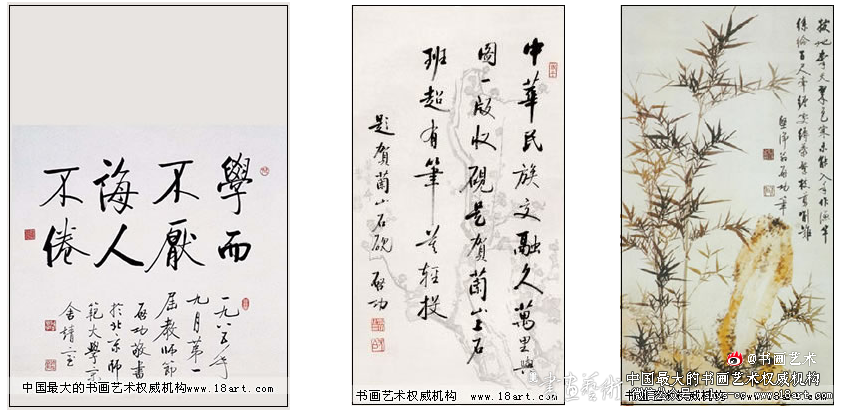 學而
不厭
誨人
不倦
一九八五年
九月第一
屆教師節
啓功敬書
於北京師
範大學
中国最大的书画艺术权威机构www.18art.com
中華民族交融久萬里輿
圖一版收硯是賀蘭山上石
班超有筆莫輕投
題賀蘭山石硯 啓功
书画艺术权威机构 www.18art.com
天翠色寒未能入手作漁竿
堅淨翁啓功筆
@书画艺术
中国最大的书画艺术权威机构
www.18art.com